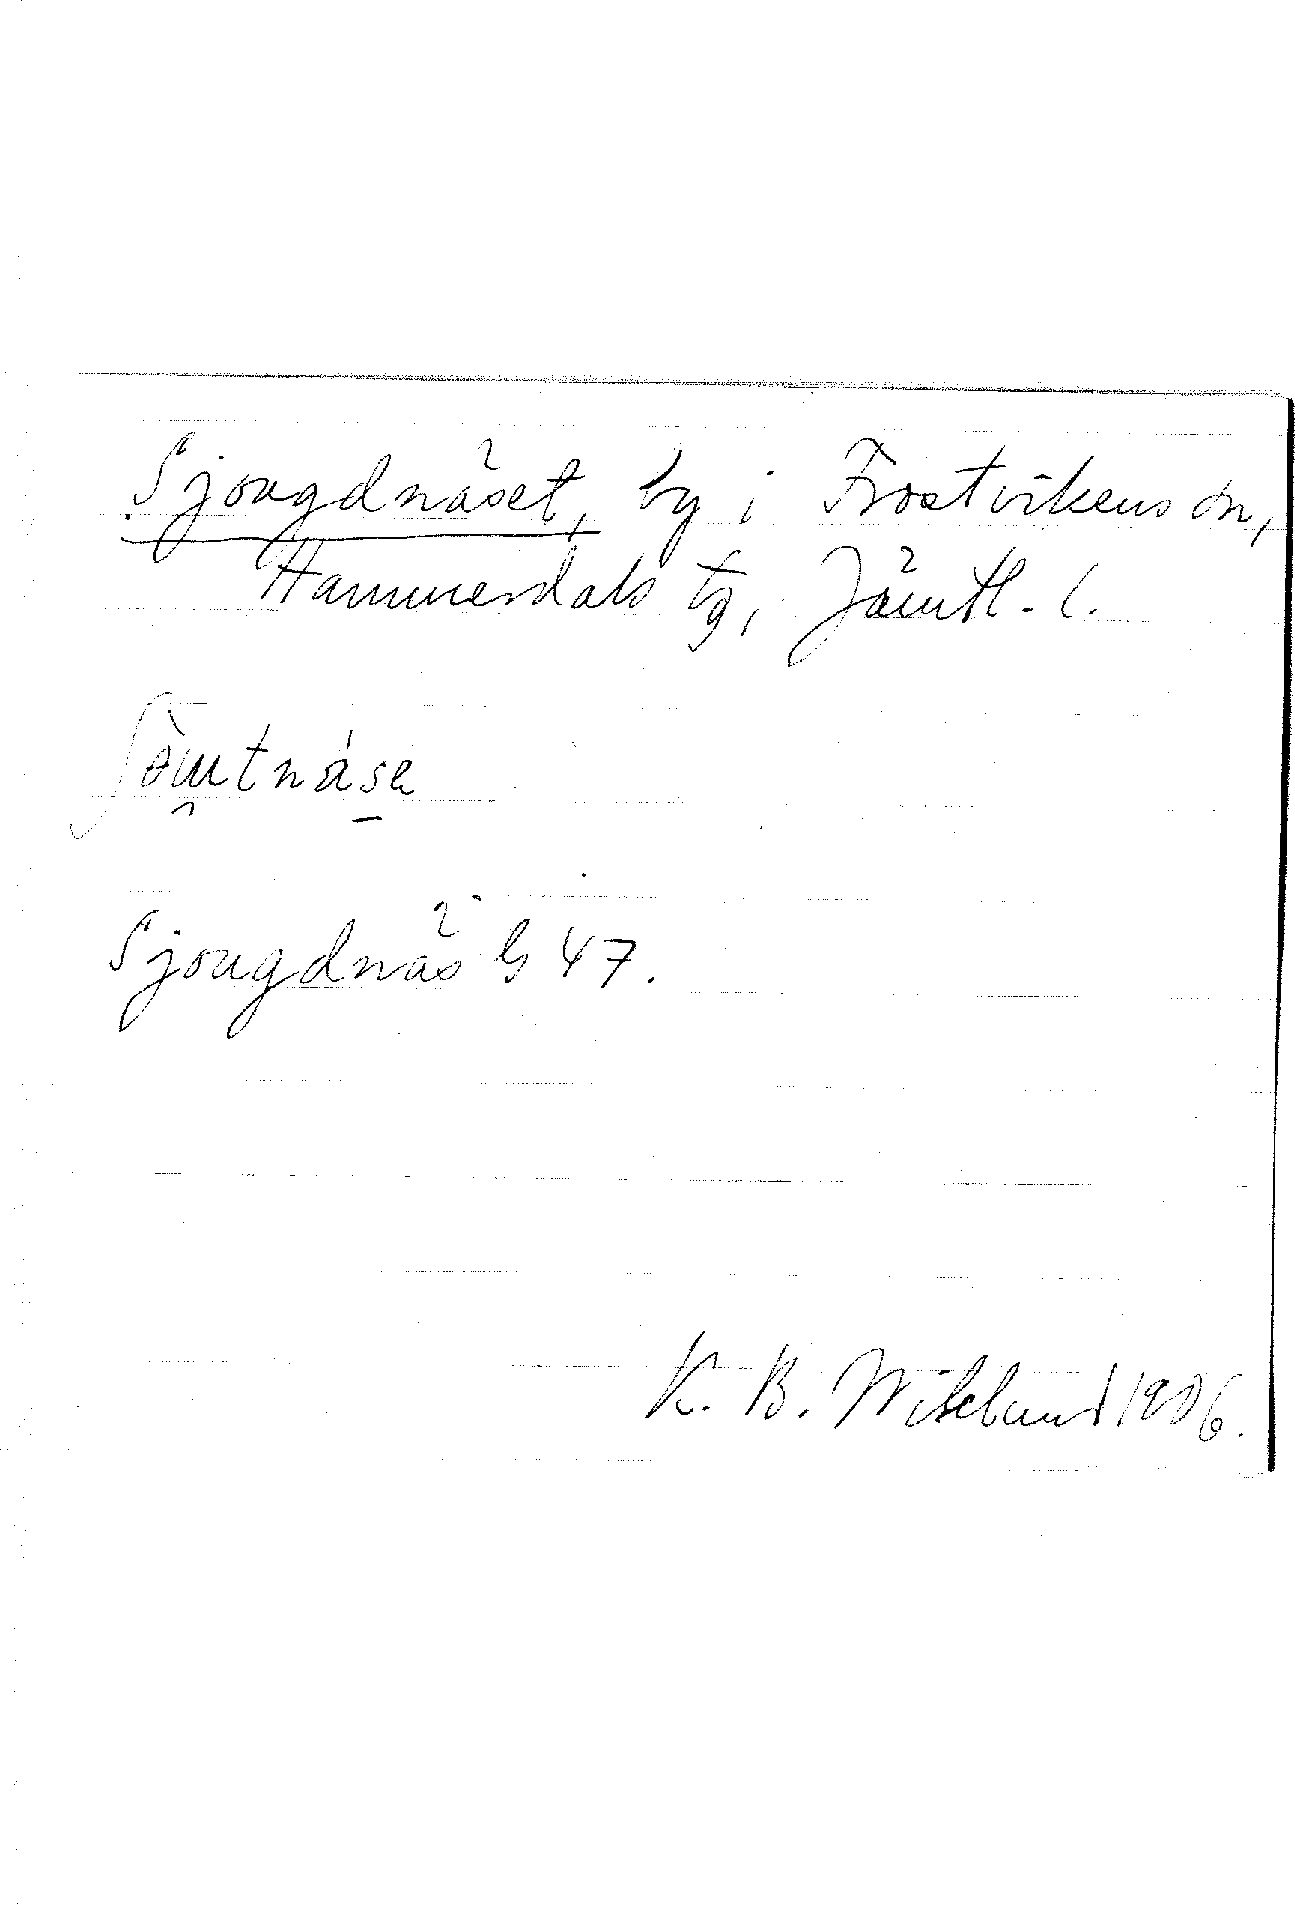 Sjougdnäset, by i Frostvikens sn,
Hammerdals tg, Jämtl. l.
Sjougdnäs G 47.
K. B. Wiklund 1906.